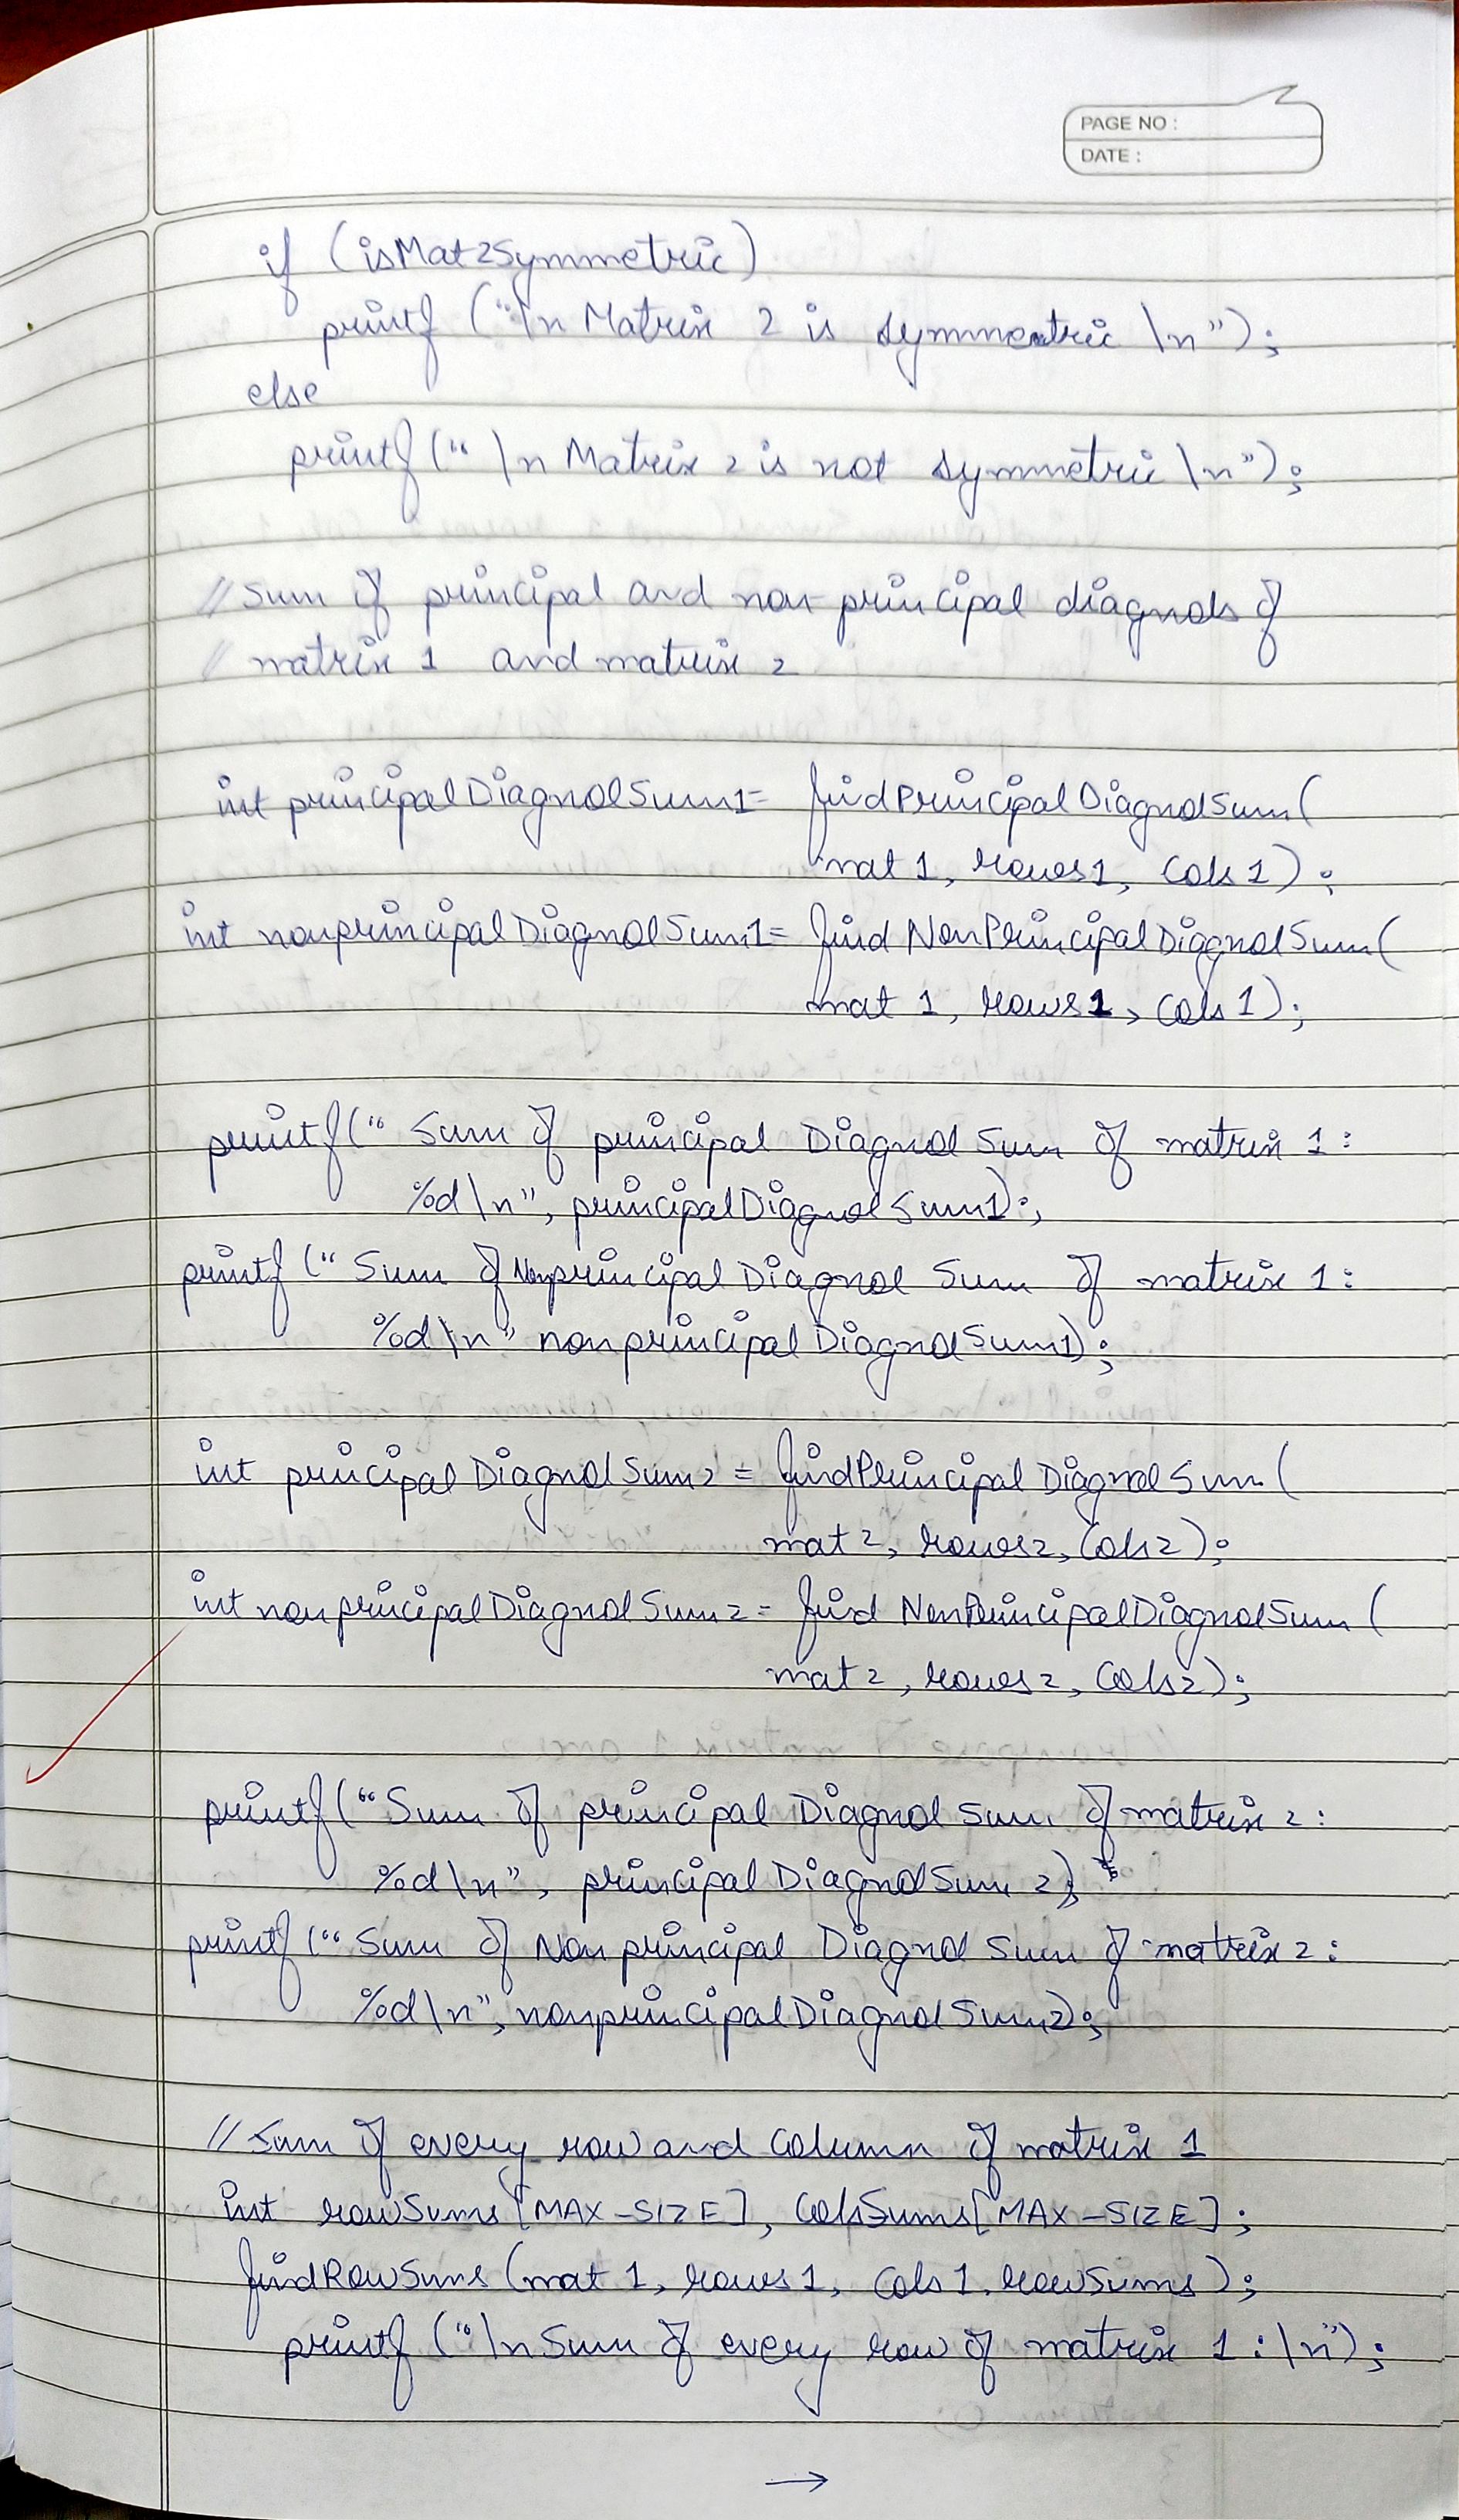 PAGE NO :
DATE :
if (isMat2Symmetric)
printf ("\n Matrix 2 is symmentric \n");
else
printf (" \n Matrix 2 is not symmetric \n");
// Sum of principal and non principal diagnols of
// matrix 1 and matrix 2
int principalDiagnolSum1 = findPrincipalDiagnolSum(
mat 1, rows1, cols 1) ;
int nonprincipalDiagnolSum1 = find NonPrincipalDiagnolSum(
mat 1, rows1, cols 1);
printf(" Sum of principal Diagnol Sum of matrix 1 :
%d\n", principalDiagnolSum1);
printf (" Sum of Nonprincipal Diagnol Sum of matrix 1 :
%d\n" nonprincipalDiagnolSum1);
int principalDiagnolSum2 = findPrincipalDiagnolSum (
mat 2, rows2, cols2);
int nonprincipalDiagnolSum2 = find NonPrincipalDiagnolSum (
mat 2, rows2, cols2);
printf("Sum of principal Diagnol Sum of matrix 2 :
%d\n", principalDiagnolSum 2);
printf (" Sum of Non principal Diagnol Sum of matrix 2 :
%d\n", nonprincipalDiagnolSum2);
// Sum of every row and column of matrix 1
int rowSums[MAX-SIZE], colsSums[MAX-SIZE];
findRowSums (mat 1, rows 1, cols 1. rowSums);
printf ("\n Sum of every row of matrix 1 : \n");
→